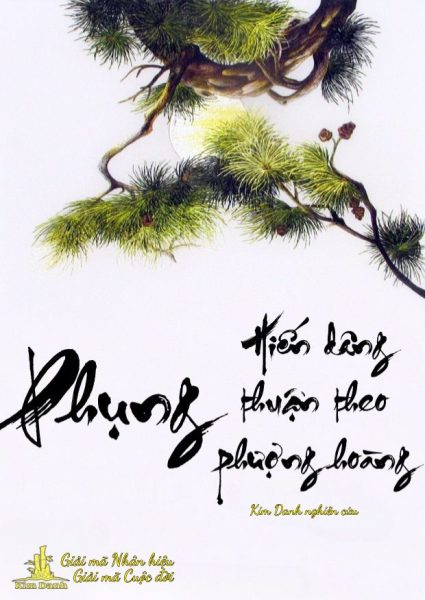 Phụng
Hiến dâng
thuận theo
phượng hoàng
Kim Danh nghiên cứu
Giải mã Nhân hiệu
Giải mã Cuộc đời
Kim Danh